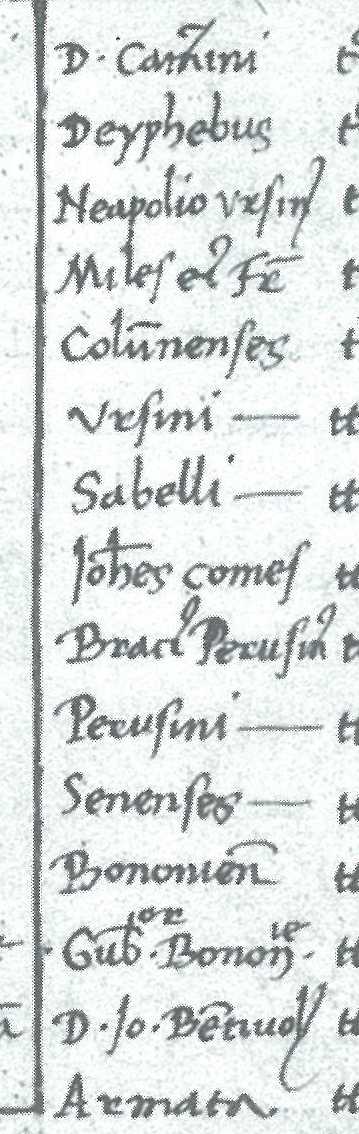 D. Camini
Deyphebus
Neapolio vrsin
Miles et Fr̄
Colūnenses
Vrsini —
Sabelli —
Joh̄es comes
Bracī Perusin
Perusini —
Senenses —
Bononien̄
Gub^or. Bonon^ie.
D. Jo. Bētiuol
Armata.